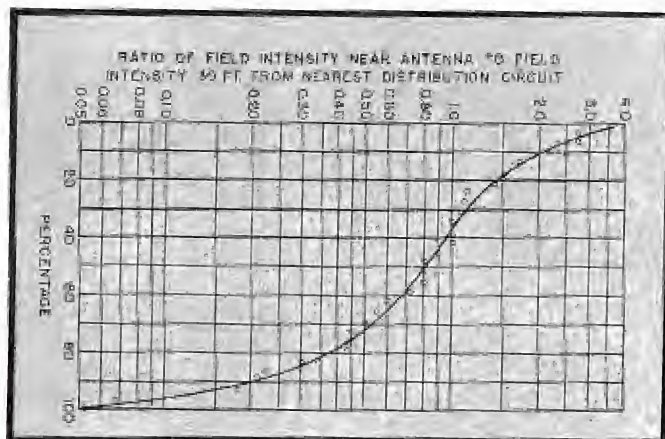 RATIO OF FIELD INTENSITY NEAR ANTENNA TO FIELD
INTENSITY 50 FT. FROM NEAREST DISTRIBUTION CIRCUIT
0.05 0.06 0.08 0.10 0.20 0.30 0.40 0.50 0.60 0.80 1.0 2.0 3.0 4.0
0
20
40
60
80
100
PERCENTAGE